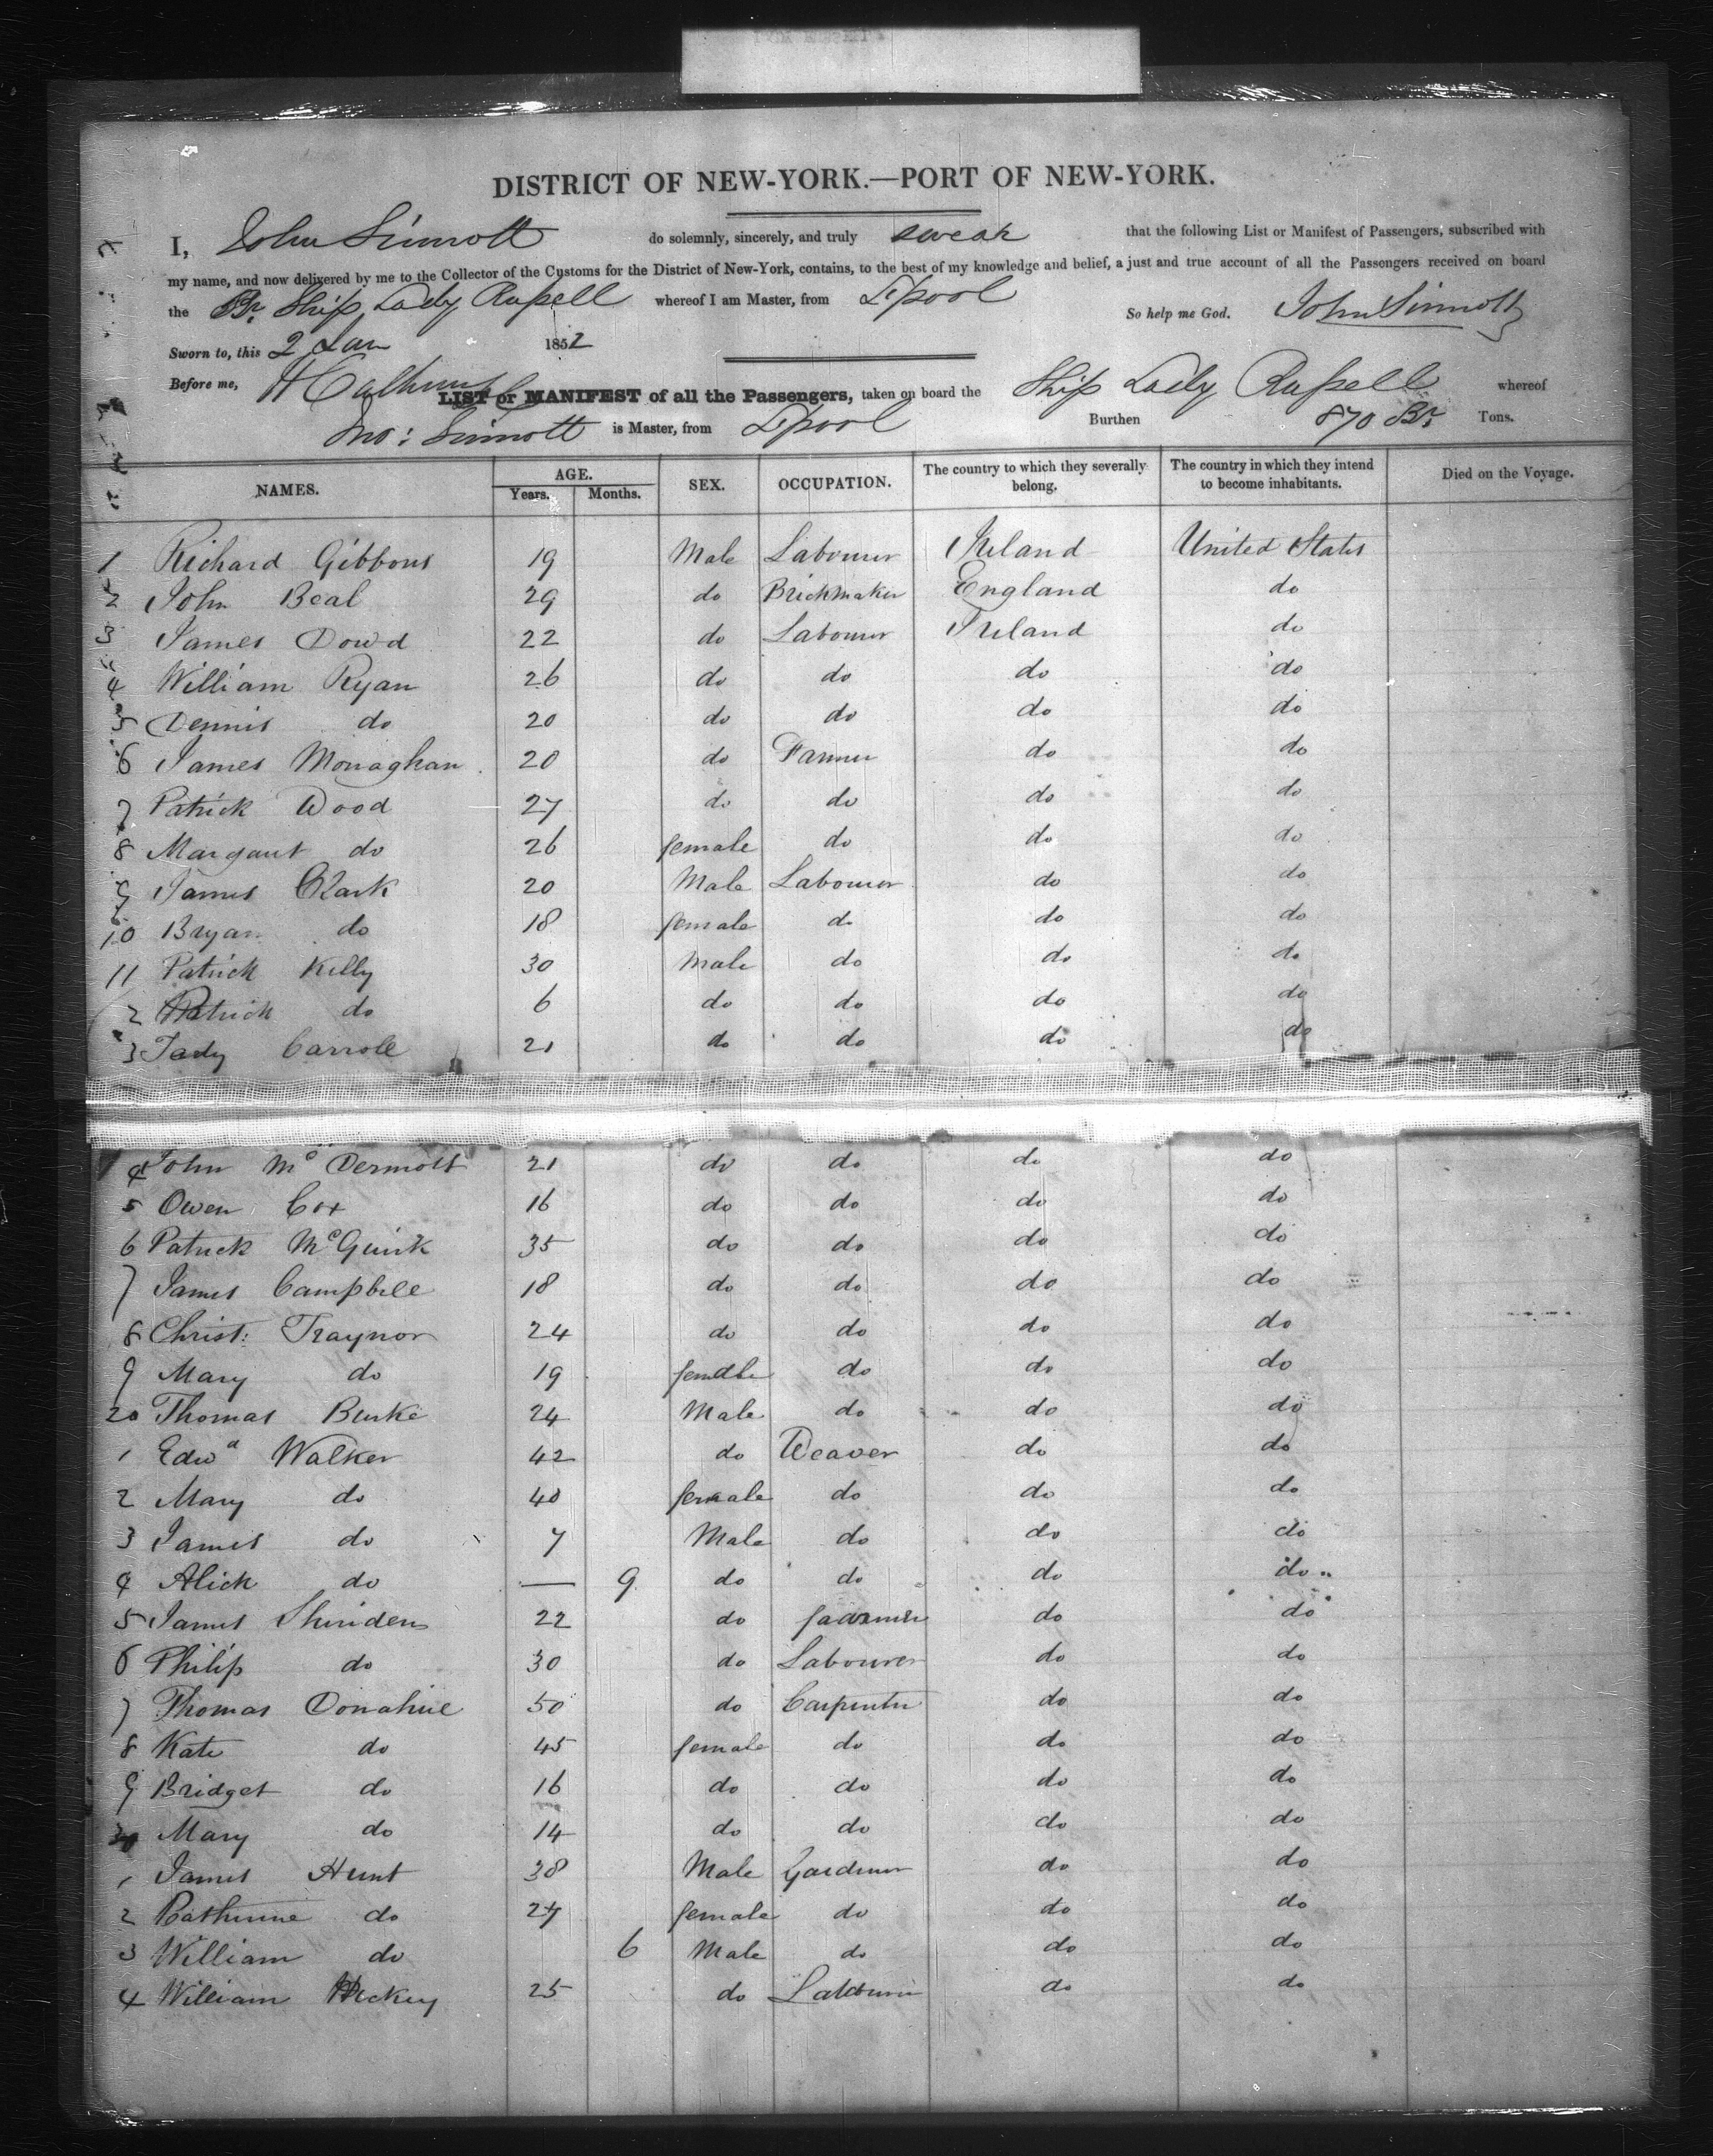 DISTRICT OF NEW-YORK.—PORT OF NEW-YORK.
I, John Sinnott do solemnly, sincerely, and truly swear that the following List or Manifest of Passengers, subscribed with
my name, and now delivered by me to the Collector of the Customs for the District of New-York, contains, to the best of my knowledge and belief, a just and true account of all the Passengers received on board
the Br. Ship Lady Russell whereof I am Master, from L'pool So help me God. John Sinnott
Sworn to, this 2 Jan 1852
Before me, H Calhoun
LIST or MANIFEST of all the Passengers, taken on board the Ship Lady Russell whereof
Jno: Sinnott is Master, from L'pool Burthen 870 Br. Tons.
NAMES. AGE. Years. Months. SEX. OCCUPATION. The country to which they severally belong. The country in which they intend to become inhabitants. Died on the Voyage.
1 Richard Gibbons 19 Male Labourer Ireland United States
2 John Beal 29 do Brickmaker England do
3 James Dowd 22 do Labourer Ireland do
4 William Ryan 26 do do do do
5 Dennis do 20 do do do do
6 James Monaghan 20 do Farmer do do
7 Patrick Wood 27 do do do do
8 Margaret do 26 female do do do
9 James Clark 20 Male Labourer do do
10 Bryan do 18 female do do do
11 Patrick Kelly 30 Male do do do
2 Patrick do 6 do do do do
3 Tady Carroll 21 do do do do
4 John McDermott 21 do do do do
5 Owen Cox 16 do do do do
6 Patrick McGuirk 35 do do do do
7 James Campbell 18 do do do do
8 Christ: Traynor 24 do do do do
9 Mary do 19 female do do do
20 Thomas Burke 24 Male do do do
1 Edwd Walker 42 do Weaver do do
2 Mary do 40 female do do do
3 James do 7 Male do do do
4 Alick do — 9 do do do do
5 James Shiridens 22 do faarmer do do
6 Philip do 30 do Labourer do do
7 Thomas Donahue 50 do Carpenter do do
8 Kate do 45 female do do do
9 Bridget do 16 do do do do
30 Mary do 14 do do do do
1 James Hunt 38 Male Gardener do do
2 Catherine do 27 female do do do
3 William do 6 Male do do do
4 William Hickey 25 do Labourer do do